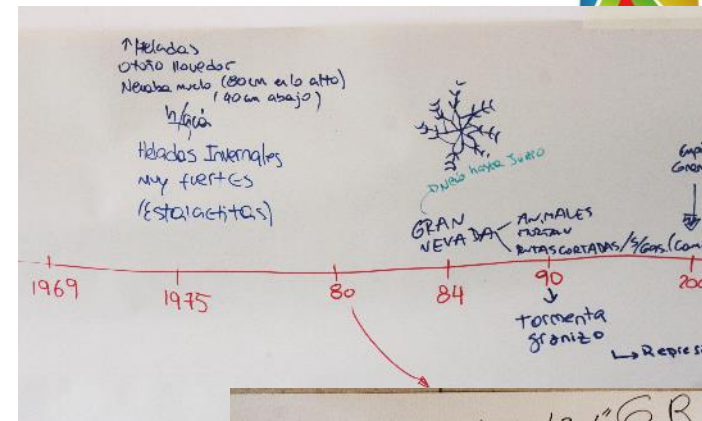 ↑ Heladas
Otoño llovedor
Nevaba mucho (80cm en lo alto)
(40cm abajo)
Heladas Invernales
muy fuertes
(Estalactitas)
Nevió hasta Junio
GRAN
NEVADA
ANIMALES
RUTAS CORTADAS/S/Gas.
1969
1975
80
84
90
200
tormenta
granizo
↳ Represi